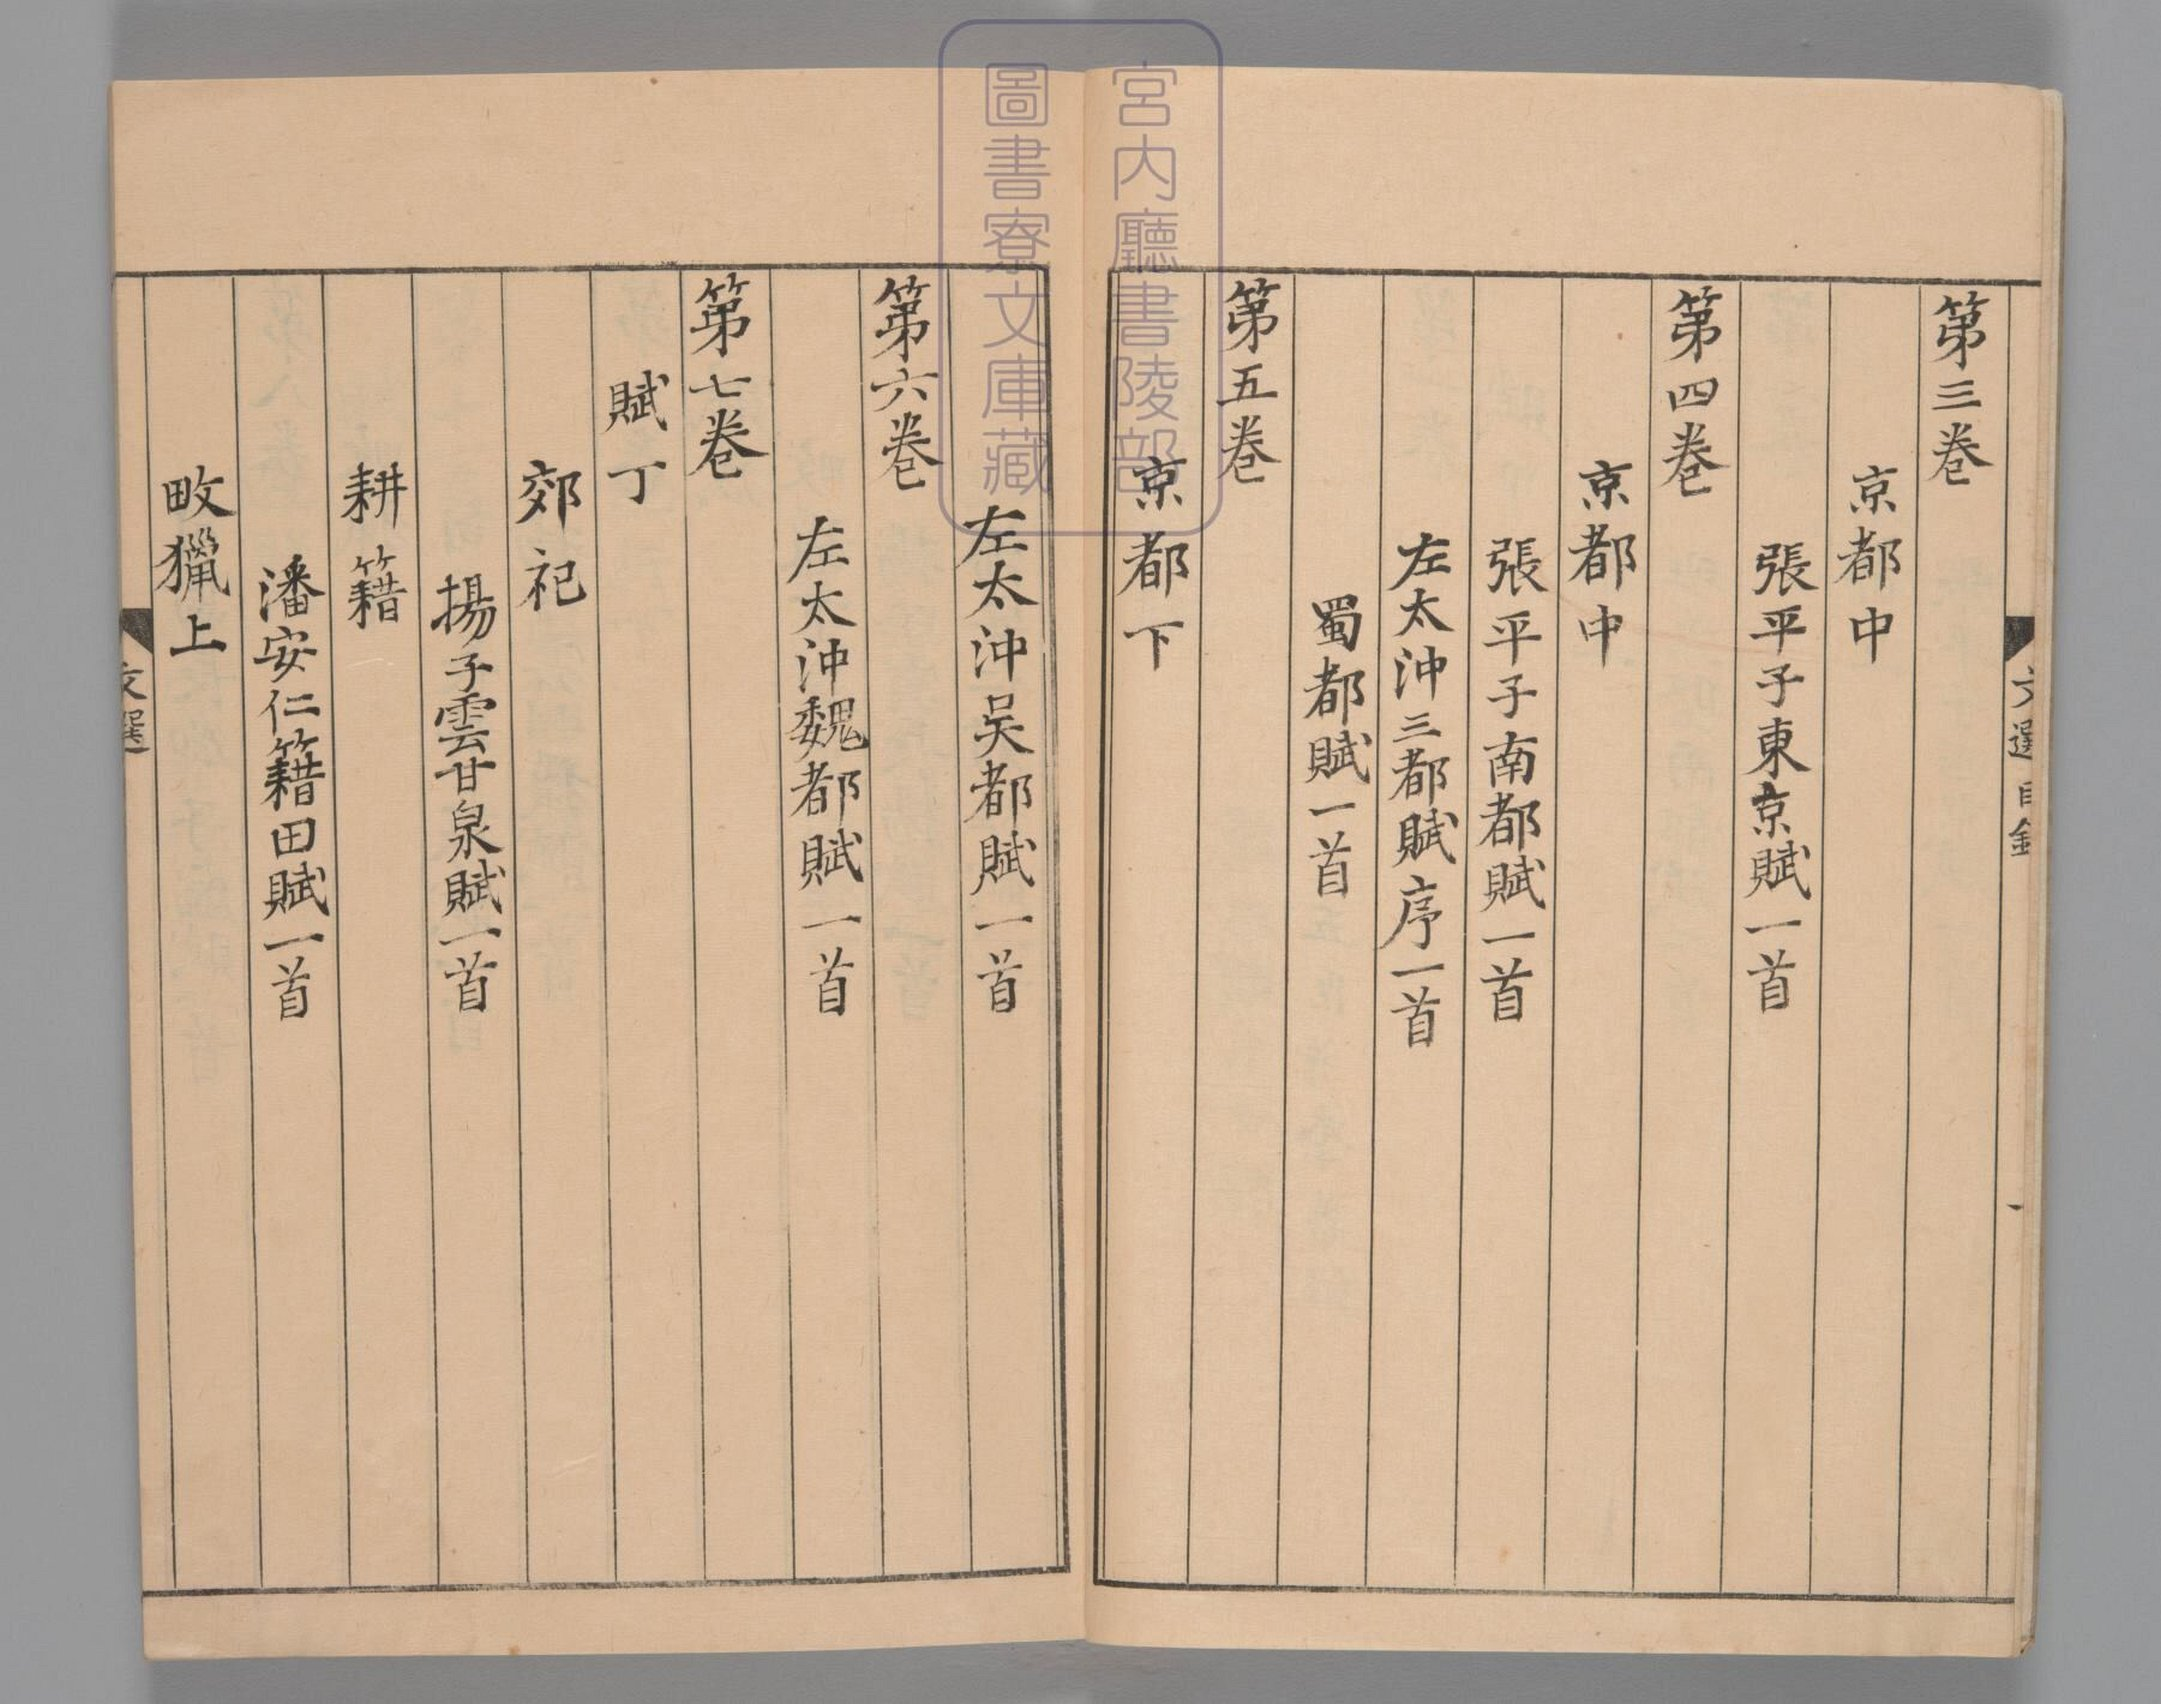 文選目錄
第三巻
京都中
張平子東京賦一首
第四巻
京都中
張平子南都賦一首
左太沖三都賦序一首
蜀都賦一首
第五巻
京都下
左太沖吴都賦一首
第六巻
左太沖魏都賦一首
第七巻
賦丁
郊祀
揚子雲甘泉賦一首
耕籍
潘安仁籍田賦一首
畋獵上
文選
宮内廳書陵部
圖書寮文庫藏